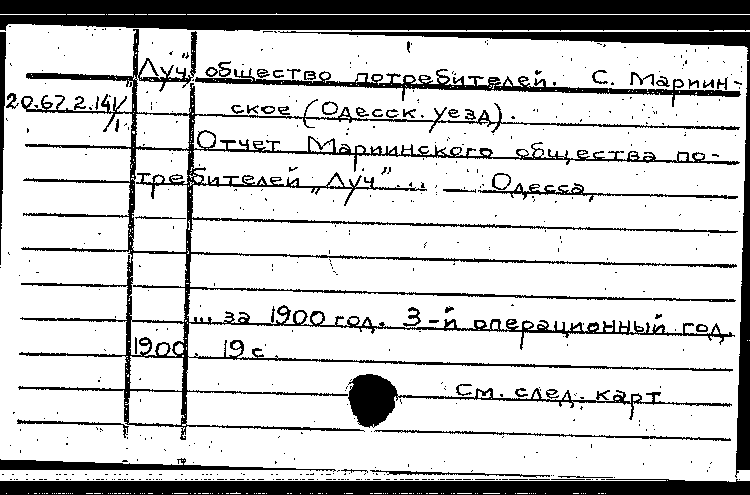 „Луч", общество потребителей. С. Мариин-
20.67.2.141/1
ское (Одесск. уезд).
Отчет Мариинского общества по-
требителей „Луч"... Одесса,
... за 1900 год. 3-й операционный год.
1900. 19 с.
См. след. карт